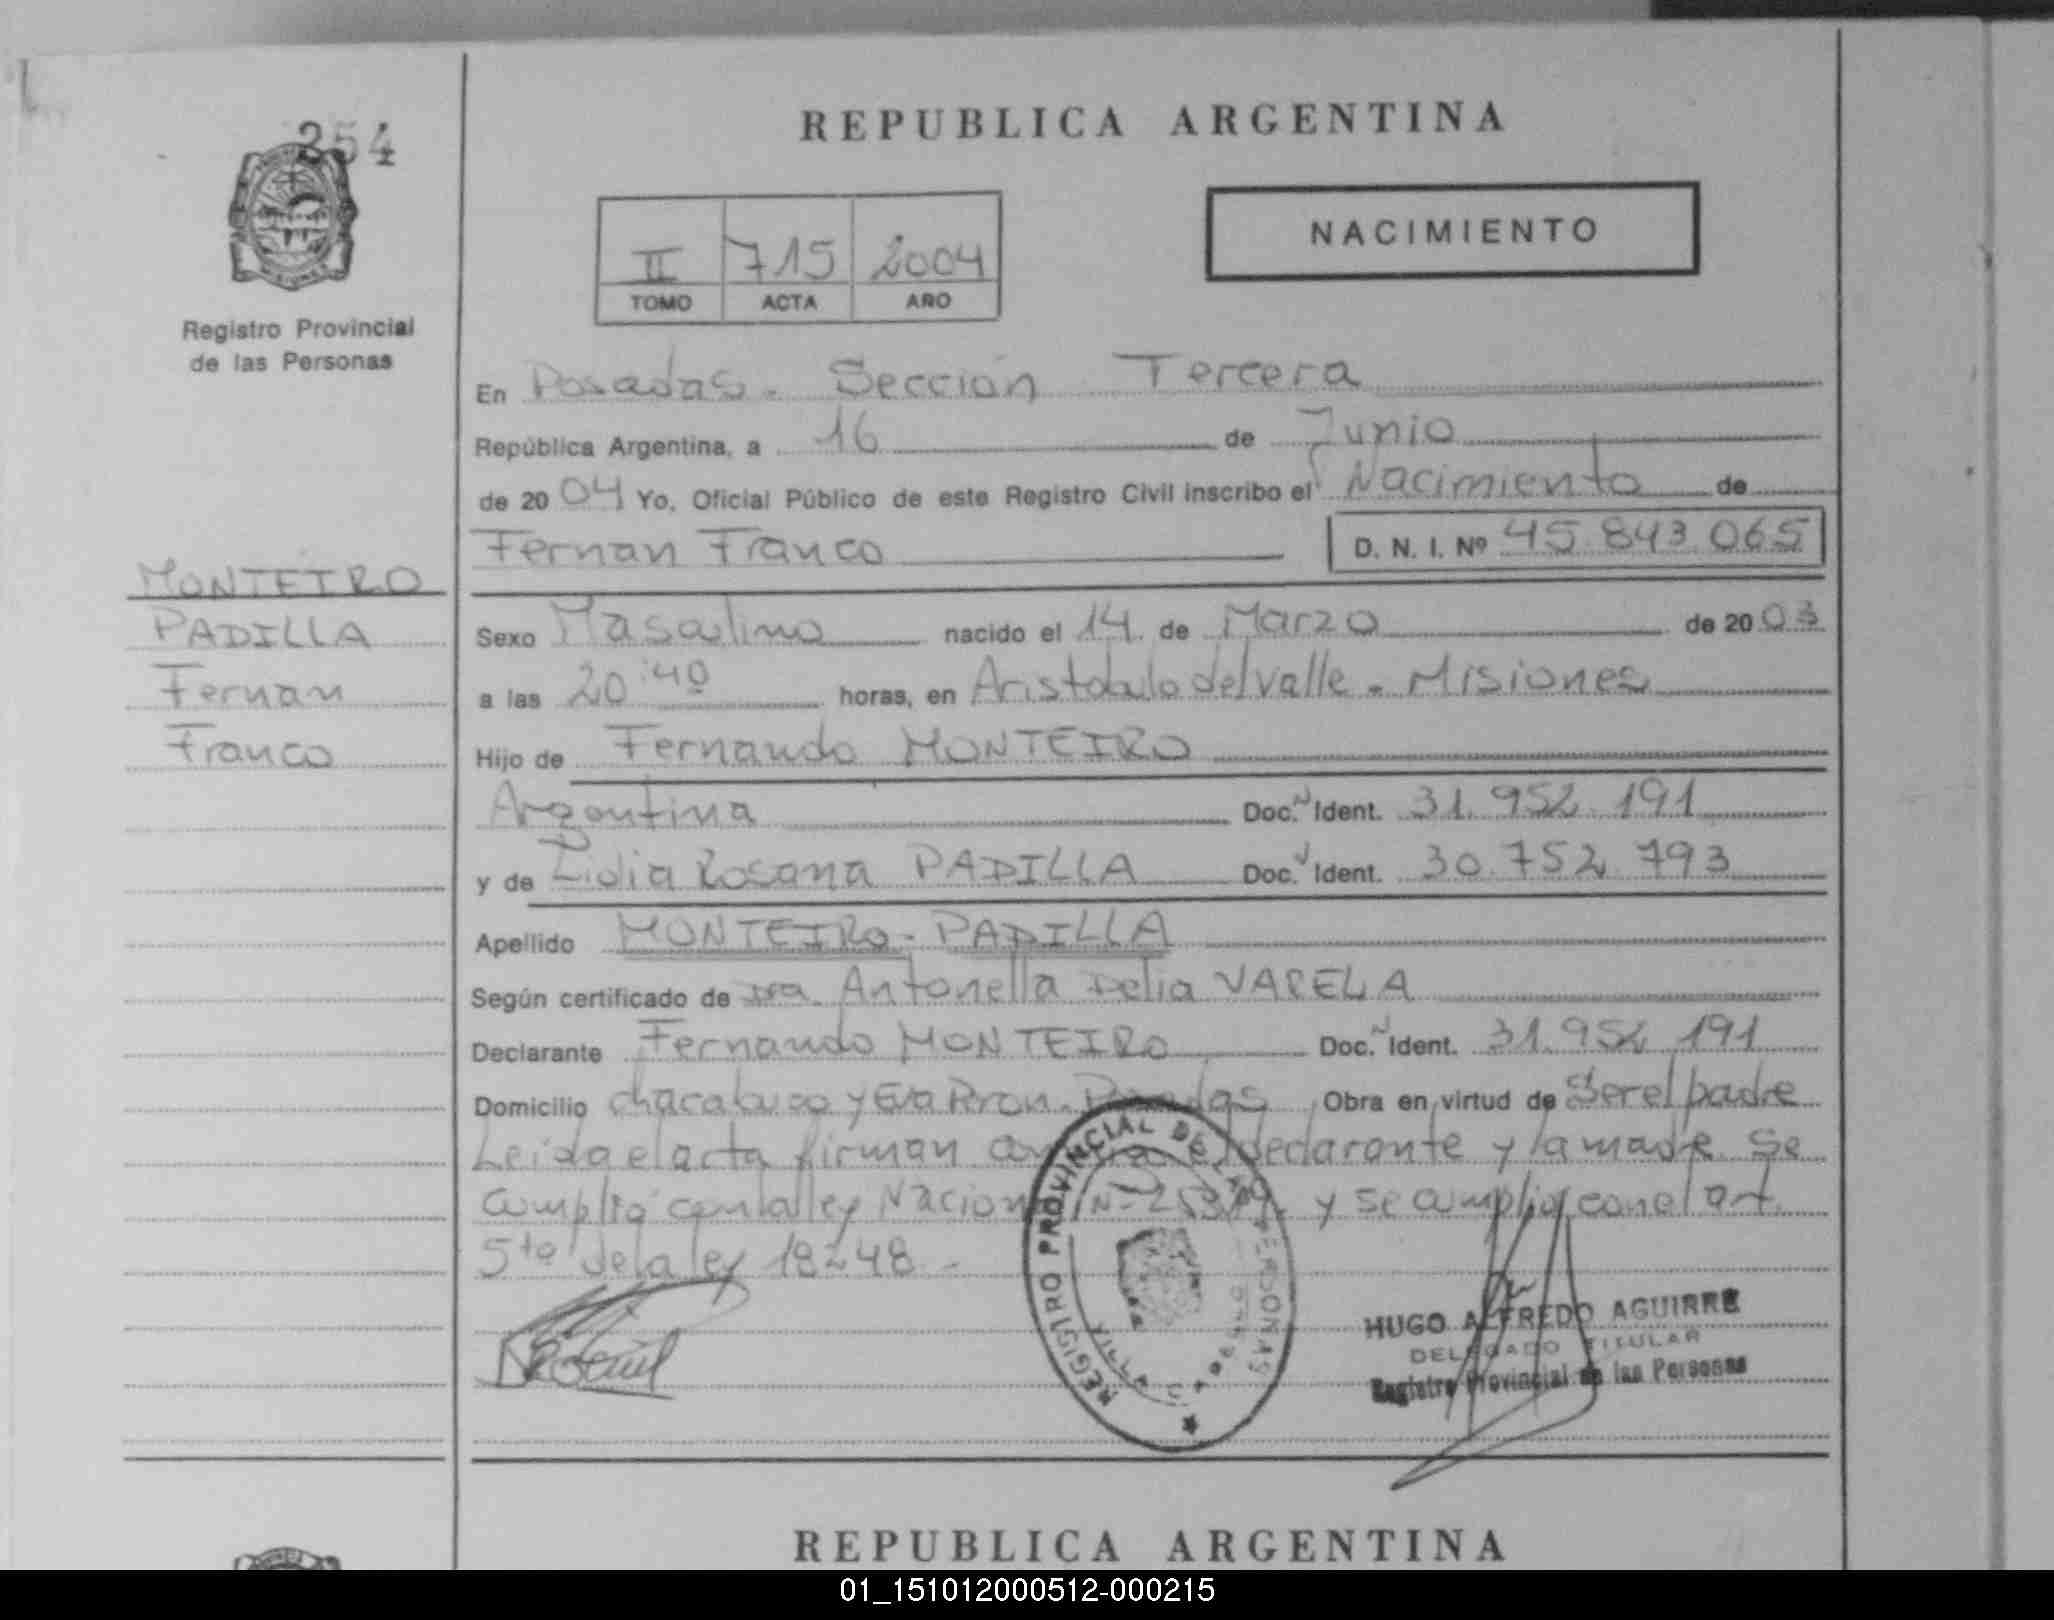 254
REPUBLICA ARGENTINA
NACIMIENTO
II 715 2004
TOMO ACTA AÑO
Registro Provincial
de las Personas
En Posadas. Sección Tercera
República Argentina, a 16 de Junio
de 2004 Yo, Oficial Público de este Registro Civil inscribo el Nacimiento de
Fernan Franco D. N. I. Nº 45.843.065
MONTEIRO
PADILLA
Fernan
Franco
Sexo Masculino nacido el 14 de Marzo de 2003
a las 20:40 horas, en Aristobulo del valle. Misiones
Hijo de Fernando MONTEIRO
Argentina Doc. Ident. 31.952.191
y de Lidia Rosana PADILLA Doc. Ident. 30.752.793
Apellido MONTEIRO - PADILLA
Según certificado de Dra. Antonella Delia VARELA
Declarante Fernando MONTEIRO Doc. Ident. 31.952.191
Domicilio chacabuco y Eva Peron. Posadas Obra en virtud de Ser el padre
Leida el acta firman declarante y la madre. Se
cumplio con la ley Nacional Nº y se cumplio con el art.
5to de la ley 18248.-
REGISTRO PROVINCIAL DE LAS PERSONAS
HUGO ALFREDO AGUIRRE
DELEGADO TITULAR
Registro Provincial de las Personas
REPUBLICA ARGENTINA
01_151012000512-000215